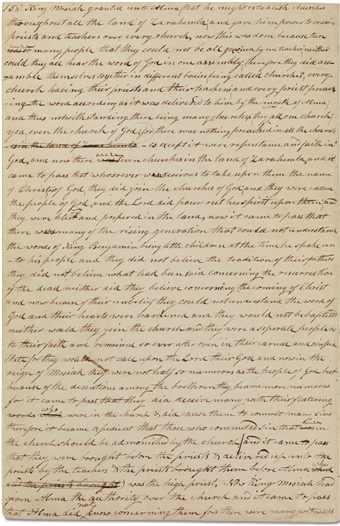 55 King Mosiah granted unto Alma that he might establish churches
throughout all the land of Zarahemla and gave him power to ordain
priests and teachers over every church, now this was done because there
was so many people that they could not be all governed by one teacher neither
could they all hear the word of God in one assembly therefore they did asse-
mble themselves together in different bodies being called churches every
church having their priests and their teachers and every priest preach-
ing the word according as it was delivered to him by the mouth of Alma
and thus notwithstanding there being many churches they all one church
yea even the church of God for there was nothing preached in all the churches
except it were repentance and faith in
God and now there were seven churches in the land of Zarahemla and it
came to pass that whosoever was desirous to take upon them the name
of Christ or of God they did join the churches of God and they were called
the people of God and the Lord did pour out his spirit upon them and
they were blest and prospered in the land, now it came to pass that
there was many of the rising generation that could not understand
the words of King Benjamin being little children at the time he spake un-
to his people and they did not believe the tradition of their fathers
they did not believe what had been said concerning the resurrection
of the dead neither did they believe concerning the coming of Christ
and now because of their unbelief they could not understand the word of
God and their hearts were hardened and they would not be baptised
neither would they join the church and they were a seperate people as
to their faith and remained so ever after even in their carnal and sinful
state for they would not call upon the Lord their God and now in the
reign of Mosiah they were not half so numerous as the people of God but
because of the disentions among the brethren they became more numerous
for it came to pass that they did deceive many with their flattering
words who were in the church & did cause them to commit many sins
therefore it became expedient that those who committed sin that were in
the church should be admonished by the church and it came to pass
that they were brought before the priests & delivered up unto the
priests by the teachers & the priests brought them before Alma who
was the high priest, Now King Mosiah had
given Alma the authority over the church and it came to pass
that Alma did not know concerning them for there were many witnesses